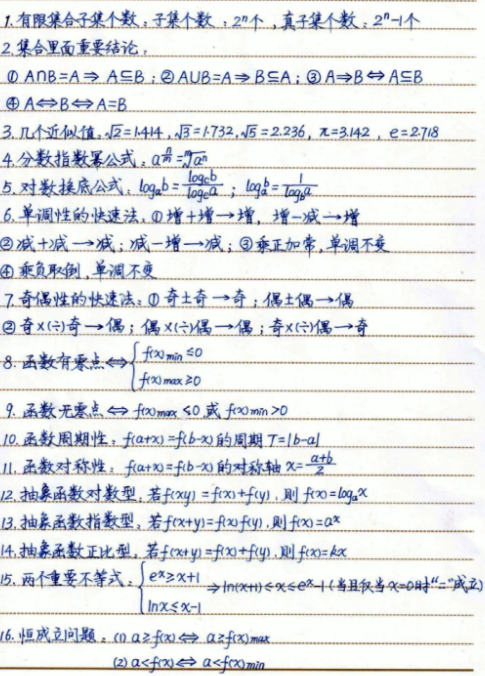 1.有限集合子集个数:子集个数:2ⁿ个,真子集个数:2ⁿ-1个
2.集合里面重要结论:
① A∩B=A⇒A⊆B;②A∪B=A⇒B⊆A;③A⇒B⇔A⊆B
④A⇔B⇔A=B
3.几个近似值:√2=1.414,√3=1.732,√5=2.236,π=3.142,e=2.718
4.分数指数幂公式:a^(n/m)=ᵐ√aⁿ
5.对数换底公式:logₐb=log_c b/log_c a;logₐb=1/log_b a
6.单调性的快速法:①增+增→增,增-减→增
②减+减→减;减-增→减;③乘正加常,单调不变
④乘负取倒,单调不变
7.奇偶性的快速法:①奇±奇→奇;偶±偶→偶
②奇×(÷)奇→偶;偶×(÷)偶→偶;奇×(÷)偶→奇
8.函数有零点⇔{f(x)min≤0
f(x)max≥0
9.函数无零点⇔f(x)max≤0或f(x)min>0
10.函数周期性:f(a+x)=f(b-x)的周期T=|b-a|
11.函数对称性:f(a+x)=f(b-x)的对称轴x=(a+b)/2
12.抽象函数对数型,若f(xy)=f(x)+f(y),则f(x)=logₐx
13.抽象函数指数型,若f(x+y)=f(x)f(y),则f(x)=aˣ
14.抽象函数正比型,若f(x+y)=f(x)+f(y),则f(x)=kx
15.两个重要不等式:{eˣ≥x+1
lnx≤x-1
⇒ln(x+1)≤x≤eˣ-1(当且仅当x=0时"="成立)
16.恒成立问题:(1) a≥f(x)⇔a≥f(x)max
(2) a<f(x)⇔a<f(x)min